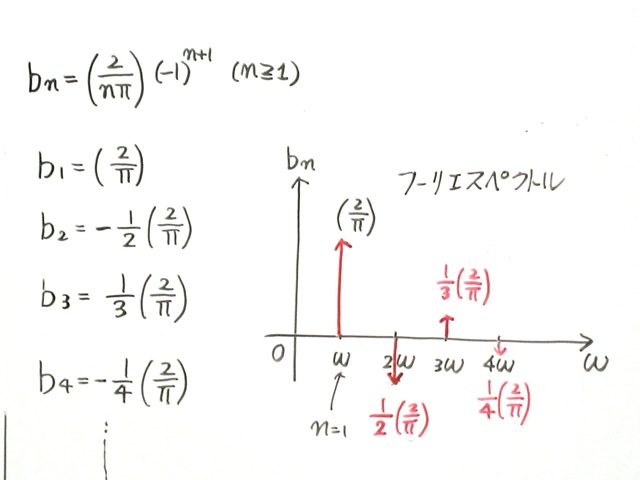 bn = (2/nπ) (-1)^n+1 (n≧1)
b1 = (2/π)
b2 = -1/2 (2/π)
b3 = 1/3 (2/π)
b4 = -1/4 (2/π)
⋮
bn
フーリエスペクトル
(2/π)
1/3 (2/π)
0 ω 2ω 3ω 4ω ω
n=1
1/2 (2/π)
1/4 (2/π)